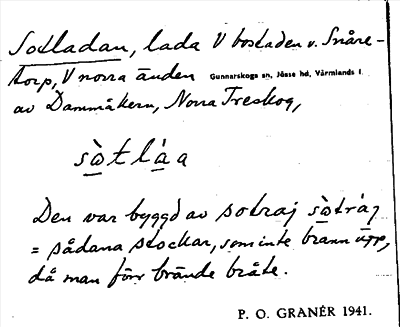 Sotladan, lada V bostaden v. Snåre-
torp, V norra änden Gunnarskogs sn, Jösse hd, Värmlands l.
av Dammåkern, Norra Treskog,
sò̲tlá̲a
Den var byggd av sotraj sò̲trá̲j
= sådana stockar, som inte brann upp,
då man förr brände bråte.
P. O. GRANÉR 1941.